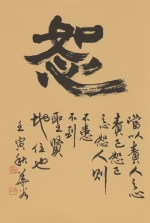 恕
當以責人之心
責己恕己
之心恕人則
不患
不到
聖賢
地位也
壬寅秋